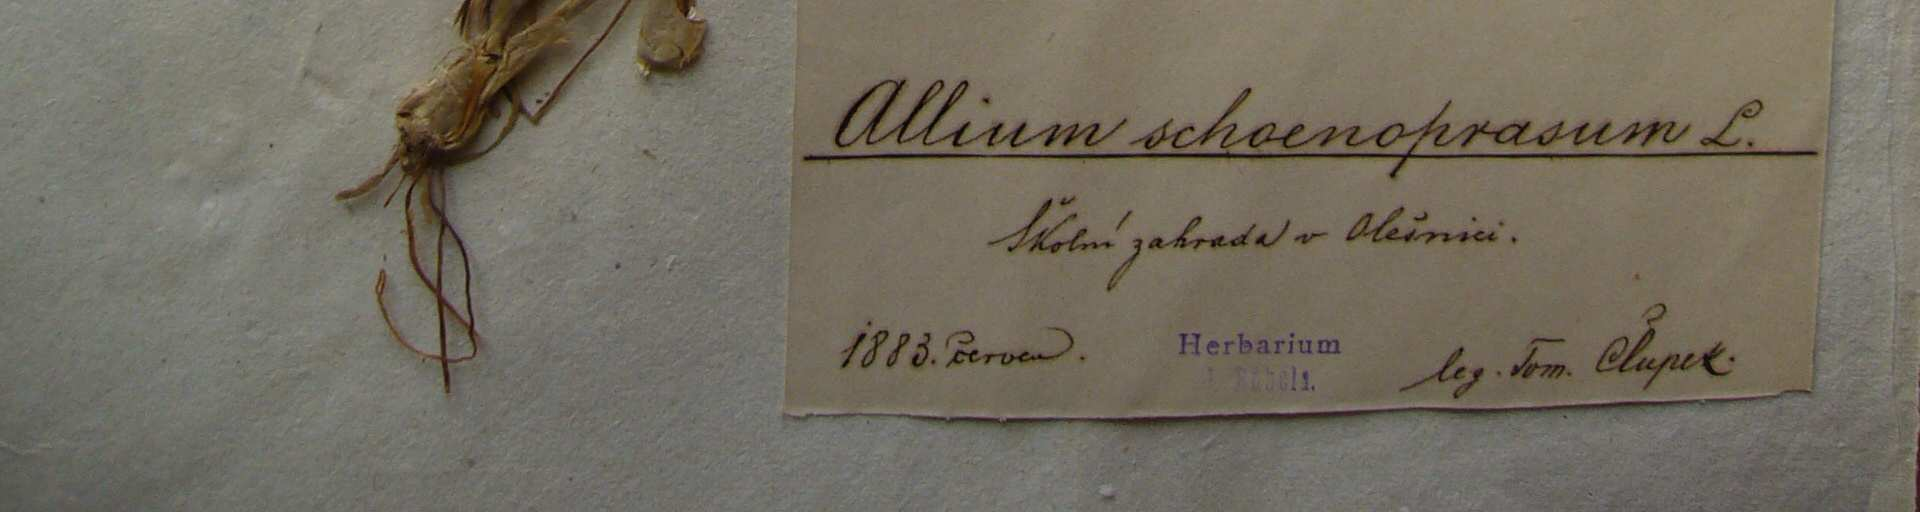 Allium schoenoprasum L.
Školní zahrada v Olešnici.
1883. Červen. Herbarium leg. Tom. Člupek.